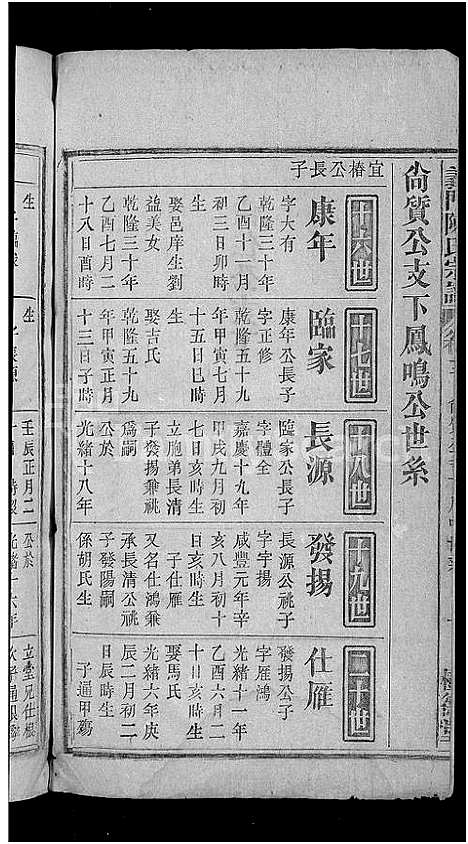 義門陳氏宗譜
尙質公支下鳳鳴公世系
十六世
宜椿公長子
康年
字大有
乾隆三十年
乙酉十一月
初三日卯時
生
娶邑庠生劉
益美女
乾隆三十年
乙酉七月二
十八日酉時
生
十七世
臨家
康年公長子
字正修
乾隆五十九
年甲寅七月
十五日巳時
生
娶吉氏
乾隆五十九
年甲寅正月
十三日子時
生
十八世
長源
臨家公長子
字體全
嘉慶十九年
甲戌九月初
七日亥時生
立胞弟長清
子發揚兼祧
爲嗣
光緒十八年
壬辰正月二
十九世
發揚
長源公祧子
字宇揚
咸豐元年辛
亥八月初十
日亥時生
子仕雁
又名仕鴻兼
承長清公祧
子發陽嗣
係胡氏生
公於
二十世
仕雁
發揚公子
字雁鴻
光緒十一年
乙酉六月二
十日亥時生
娶馬氏
光緒六年庚
辰二月初二
日辰時生
子通甲殤
立堂兄仕根